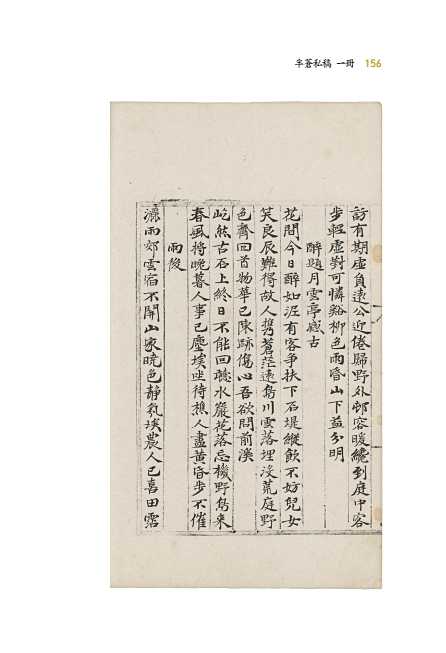 半蒼私稿 一冊 156
訪有期虛負遠公近倦歸野外邨容暖纔到庭中客
步輕虛對可憐谿柳色雨昏山下益分明
醉題月雲亭感古
花間今日醉如泥有客爭扶下石堤縱飲不妨兒女
笑良辰難得故人携蒼茫遠島川雲落埋沒荒庭野
色齊回首物華已陳跡傷心吾欲問前溪
屹然古石上終日不能回聽水巖花落忘機野鳥來
春風将晩暮人事已塵埃坐待樵人盡黃昏步不催
雨後
濛雨郊雲宿不開山家曉色靜氛埃農人已喜田霑